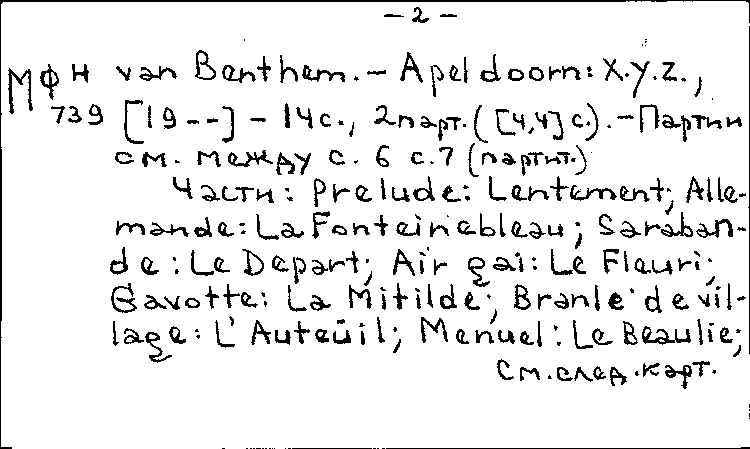 - 2 -
МФН van Benthem. - Apeldoorn: X.y.z.,
739 [19--] - 14 с., 2 парт. ([4,4] с.). - Партии
см. между с. 6 с.7 (партит.)
Части: Prelude: Lentement; Alle-
mande: La Fonteinebleau; Saraban-
de: Le Depart; Air gai: Le Fleuri;
Gavotte: La Mitilde; Branle de vil-
lage: L'Auteüil; Menuel: Le Beaulie;
См. след. карт.